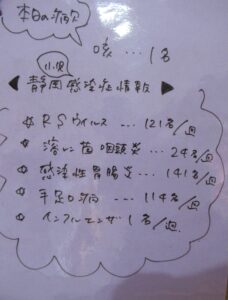 本日の病欠
咳 … 1名
小児
静岡感染症情報
☆ RSウイルス … 121名/週
◎ 溶レン菌咽頭炎 … 24名/週
◎ 感染性胃腸炎 … 141名/週
◎ 手足口病 … 114名/週
◎ インフルエンザ 1名/週